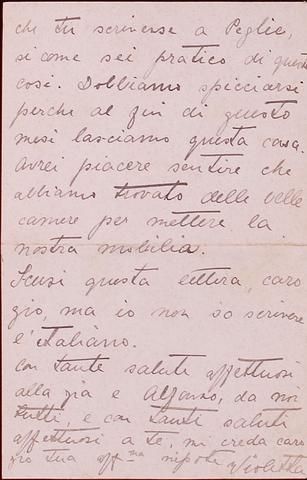 che tu scrivesse a Peglie,
si come sei pratico di queste
cosi. Dobbiamo spicciarsi
perche al fin di questo
mesi lasciamo questa casa.
Avrei piacere sentire che
abbiamo trovato delle belle
camere per mettere la
nostra mobilia.
Scusi questa lettera, caro
zio, ma io non so scrivere
l'italiano.
Con tante saluti affettuosi
alla zia e Alfonso, da noi
tutti, e con tanti saluti
affettuosi a te, mi creda caro
zio tua aff.ma nipote Violetta